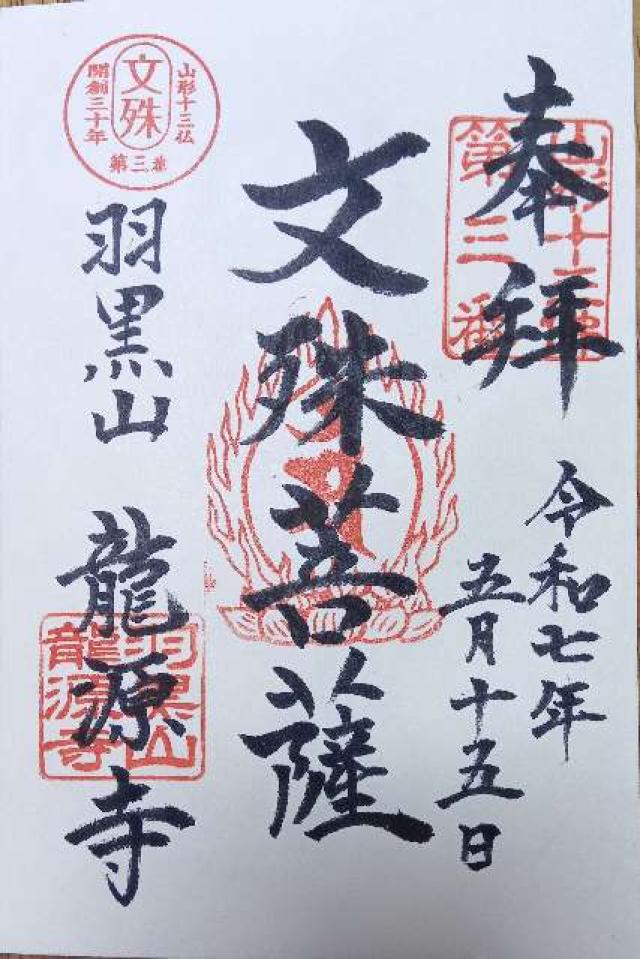 奉拝
山形十三佛
第三番
令和七年
五月十五日
文殊菩薩
山形十三仏
文殊
開創三十年
第三番
羽黒山 龍源寺
羽黒山
龍源寺